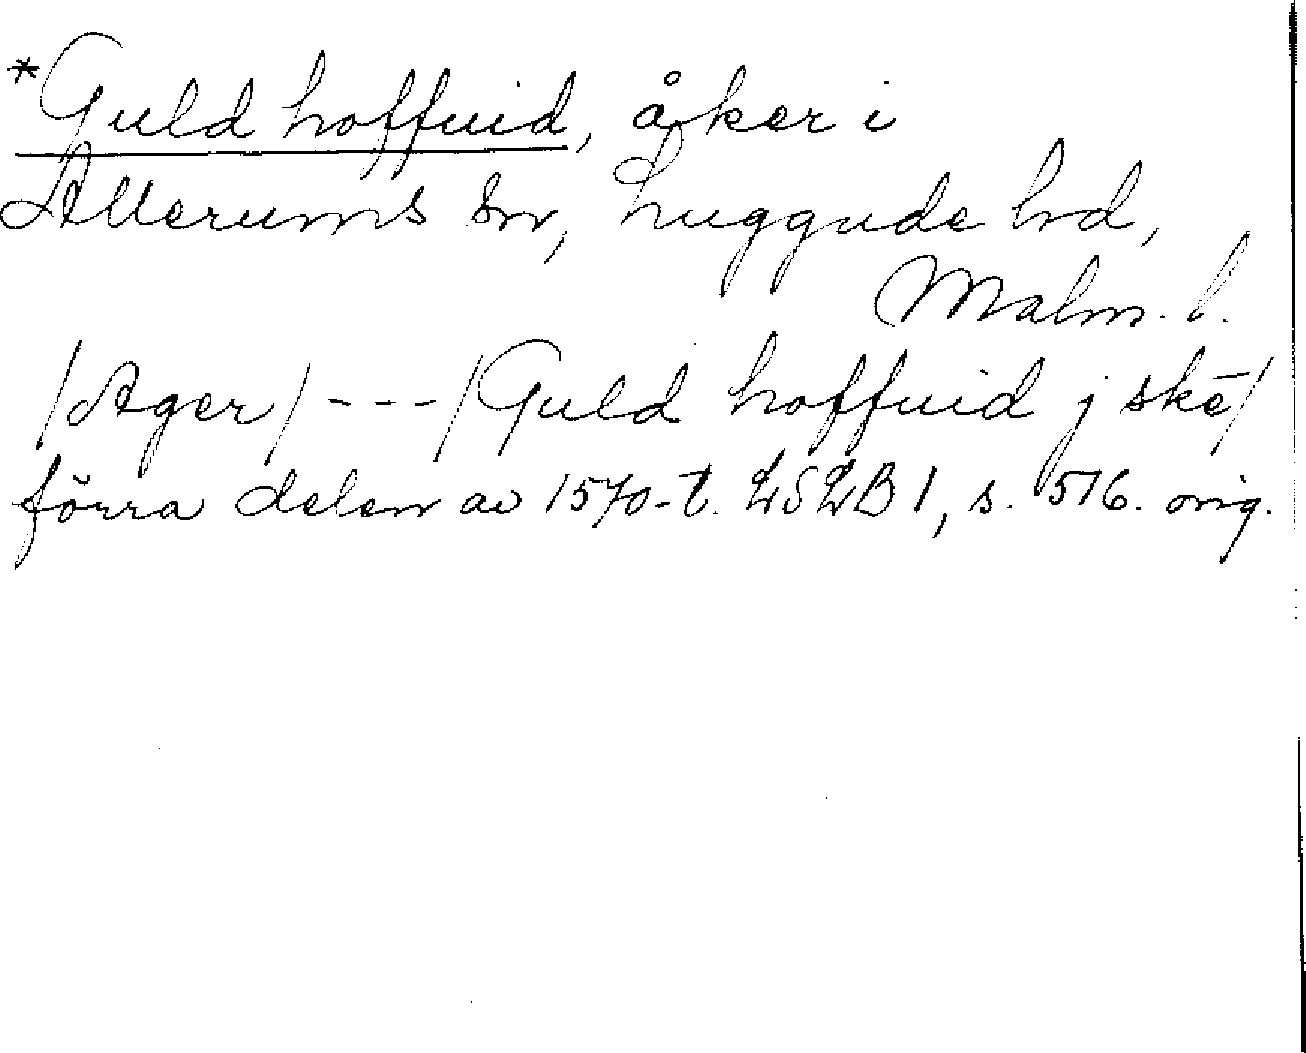 *Guld hoffuid, åker i
Allerums sn, Luggude hd,
Malm. l.
/Ager/ - - - /Guld hoffuid j skē/
förra delen av 1570-t. LSLB 1, s. 516. orig.